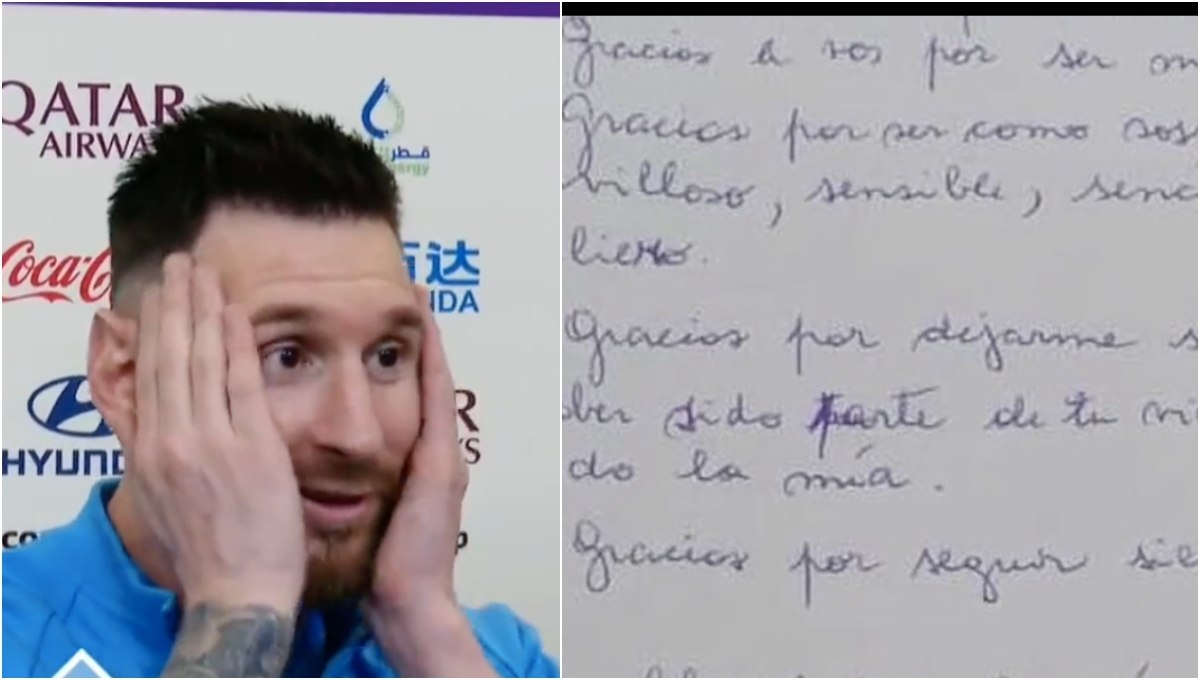 QATAR
AIRWA
قطر
ergy
Coca-C
百达
NDA
HYUND
R
YS
co
p
Gracias a vos por ser m
Gracias por ser como sos
villoso, sensible, senc
lierto.
Gracias por dejarme s
ber sido parte de tu vi
do la mía.
Gracias por seguir sie